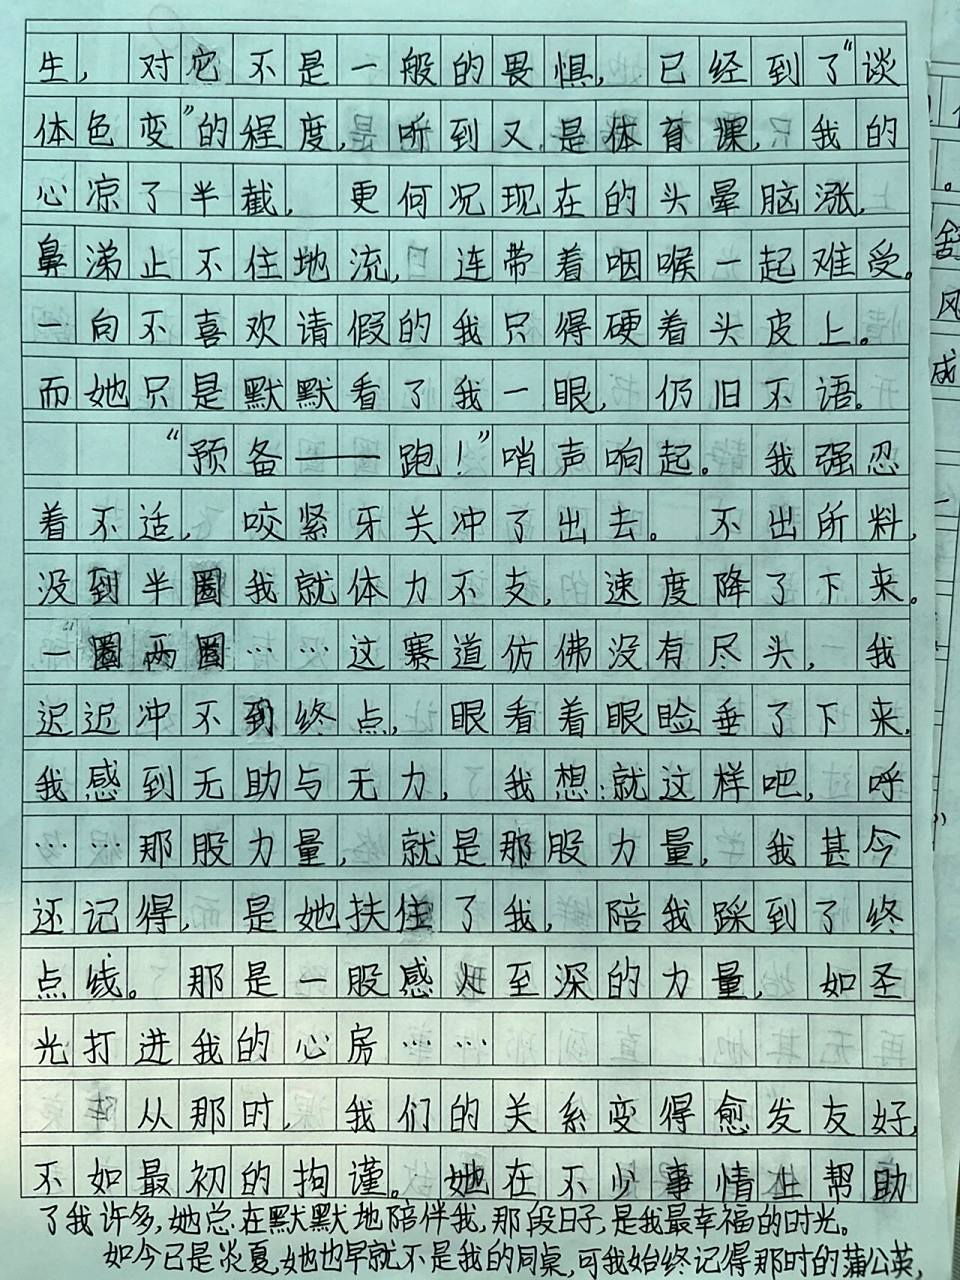 生，对它不是一般的畏惧，已经到了“谈
体色变”的程度，听到又是体育课，我的
心凉了半截，更何况现在的头晕脑涨，
鼻涕止不住地流，连带着咽喉一起难受。
一向不喜欢请假的我只得硬着头皮上。
而她只是默默看了我一眼，仍旧不语。
“预备——跑！”哨声响起。我强忍
着不适，咬紧牙关冲了出去。不出所料，
没到半圈我就体力不支，速度降了下来。
一圈两圈……这赛道仿佛没有尽头，我
迟迟冲不到终点，眼看着眼睑垂了下来，
我感到无助与无力，我想：就这样吧，呼
……那股力量，就是那股力量，我甚今
还记得，是她扶住了我，陪我踩到了终
点线。那是一股感人至深的力量，如圣
光打进我的心房……
从那时，我们的关系变得愈发友好，
不如最初的拘谨。她在不少事情上帮助
了我许多，她总在默默地陪伴我，那段日子，是我最幸福的时光。
如今已是炎夏，她也早就不是我的同桌，可我始终记得那时的蒲公英，
舒
风
成